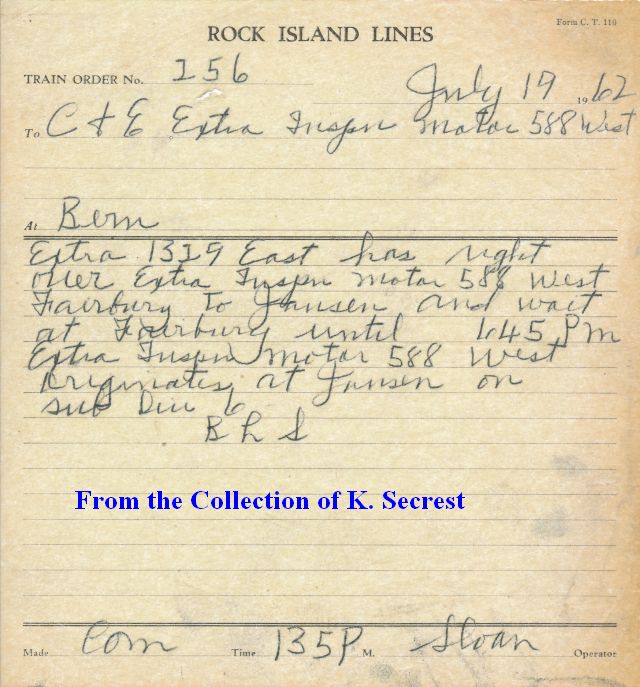 Form C. T. 110
ROCK ISLAND LINES
TRAIN ORDER No. 256
July 19 1962
To C & E Extra Inspn Motor 588 West
At Bern
Extra 1329 East has right
over Extra Inspn Motor 588 West
Fairbury To Jansen and wait
at Fairbury until 145 PM
Extra Inspn Motor 588 West
Originates at Jansen on
Sub Div 6
From the Collection of K. Secrest
Made Com Time 135P M. Sloan Operator